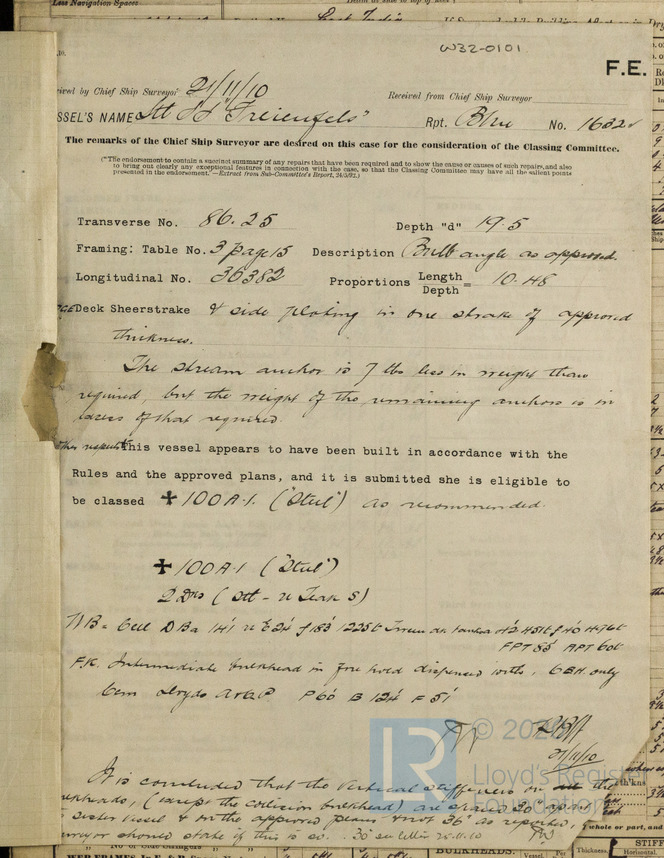 W32-0101
F.E.
eived by Chief Ship Surveyor 21/11/10
Received from Chief Ship Surveyor
SSEL'S NAME Stl SS "Freienfels"
Rpt. Bhn No. 1632
The remarks of the Chief Ship Surveyor are desired on this case for the consideration of the Classing Committee.
("The endorsement to contain a succinct summary of any repairs that have been required and to show the cause or causes of such repairs, and also
to bring out clearly any exceptional features in connection with the case, so that the Classing Committee may have all the salient points
presented in the endorsement."—Extract from Sub-Committee's Report, 24/3/92.)
Transverse No. 86.25 Depth "d" 19.5
Framing: Table No. 3 page 15 Description Bulb angle as approved.
Longitudinal No. 36382 Proportions Length / Depth = 10.48
Deck Sheerstrake & side plating in one strake of approved
thickness.
The stream anchor is 7 lbs less in weight than
required, but the weight of the remaining anchors is in
excess of that required.
other respects this vessel appears to have been built in accordance with the
Rules and the approved plans, and it is submitted she is eligible to
be classed ✠ 100A.1. ("Steel") as recommended.
✠ 100A.1 ("Steel")
2 Dks (Stl - )
WB = Cell DBa 141' 183' 1225t 
FPT 85t APT 60t
F.K. Intermediate bulkhead in fore hold dispensed with. 6BH. only
Cem Lloyds A&CP P 60' B 124' F 51'
21/11/10
It is concluded that the vertical stiffeners on the
bulkheads, (except the collision bulkhead) are spaced 30" apart
sister vessel & on the approved plans & not 36" as reported,
surveyor should state if this is so. 30" see letter 25.11.10
LR
© 202
Lloyd's Register
Foundation
whole or part, and
BULKHEADS.
Thickness.
STIFF
Horizontal.